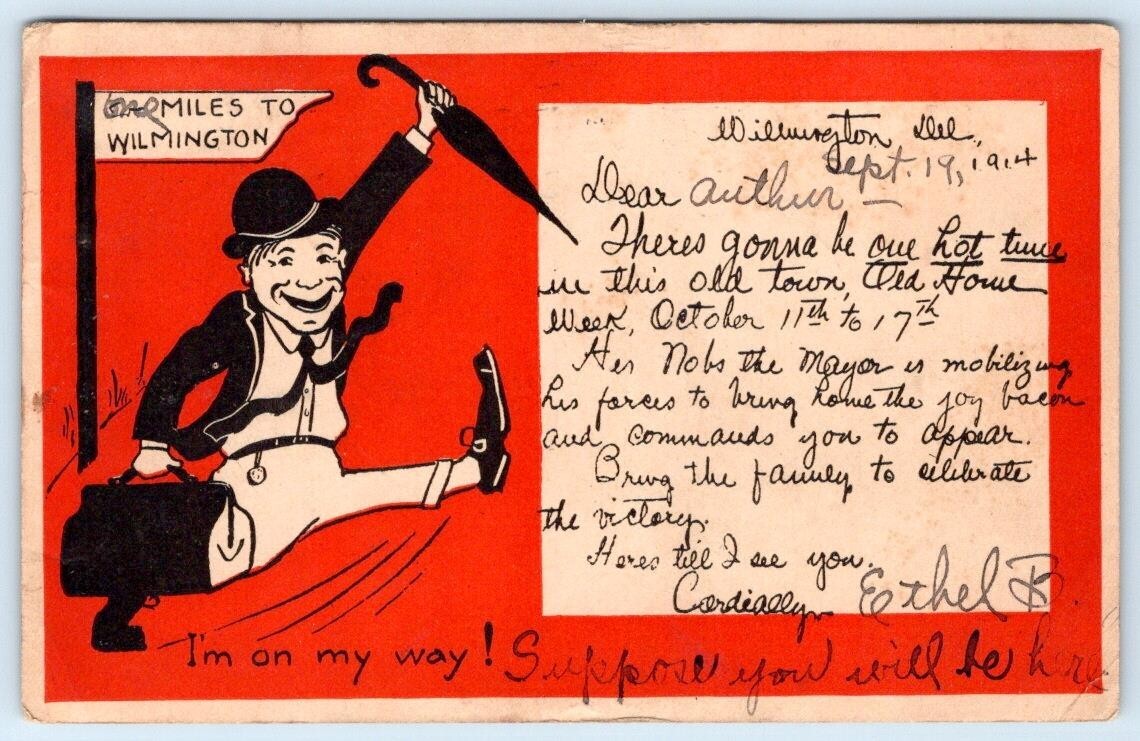 one MILES TO
WILMINGTON
Wilmington Del.,
Sept. 19, 1914
Dear Arthur —
Theres gonna be one hot time
in this old town, Old Home
Week, October 11th to 17th
His Nobs the Mayor is mobilizing
his forces to bring home the joy bacon
and commands you to appear.
Bring the family to celebrate
the victory.
Heres till I see you.
Cordially,
Ethel B.
I'm on my way!
Suppose you will be here